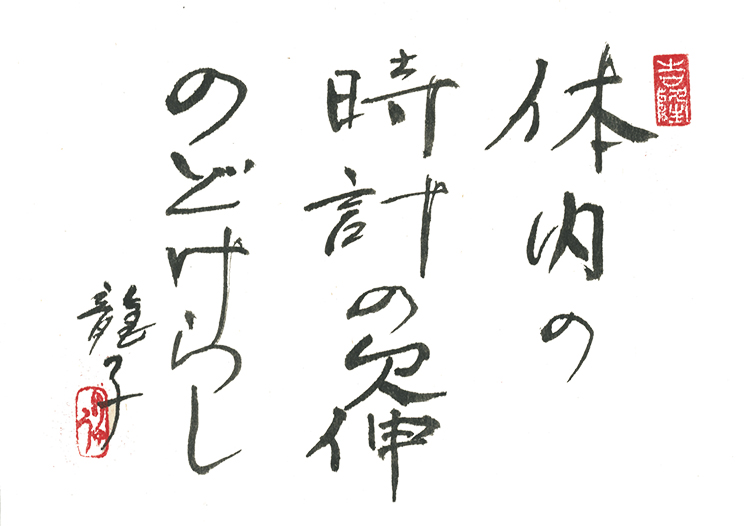 体内の
時計の欠伸
のどけらし
龍子